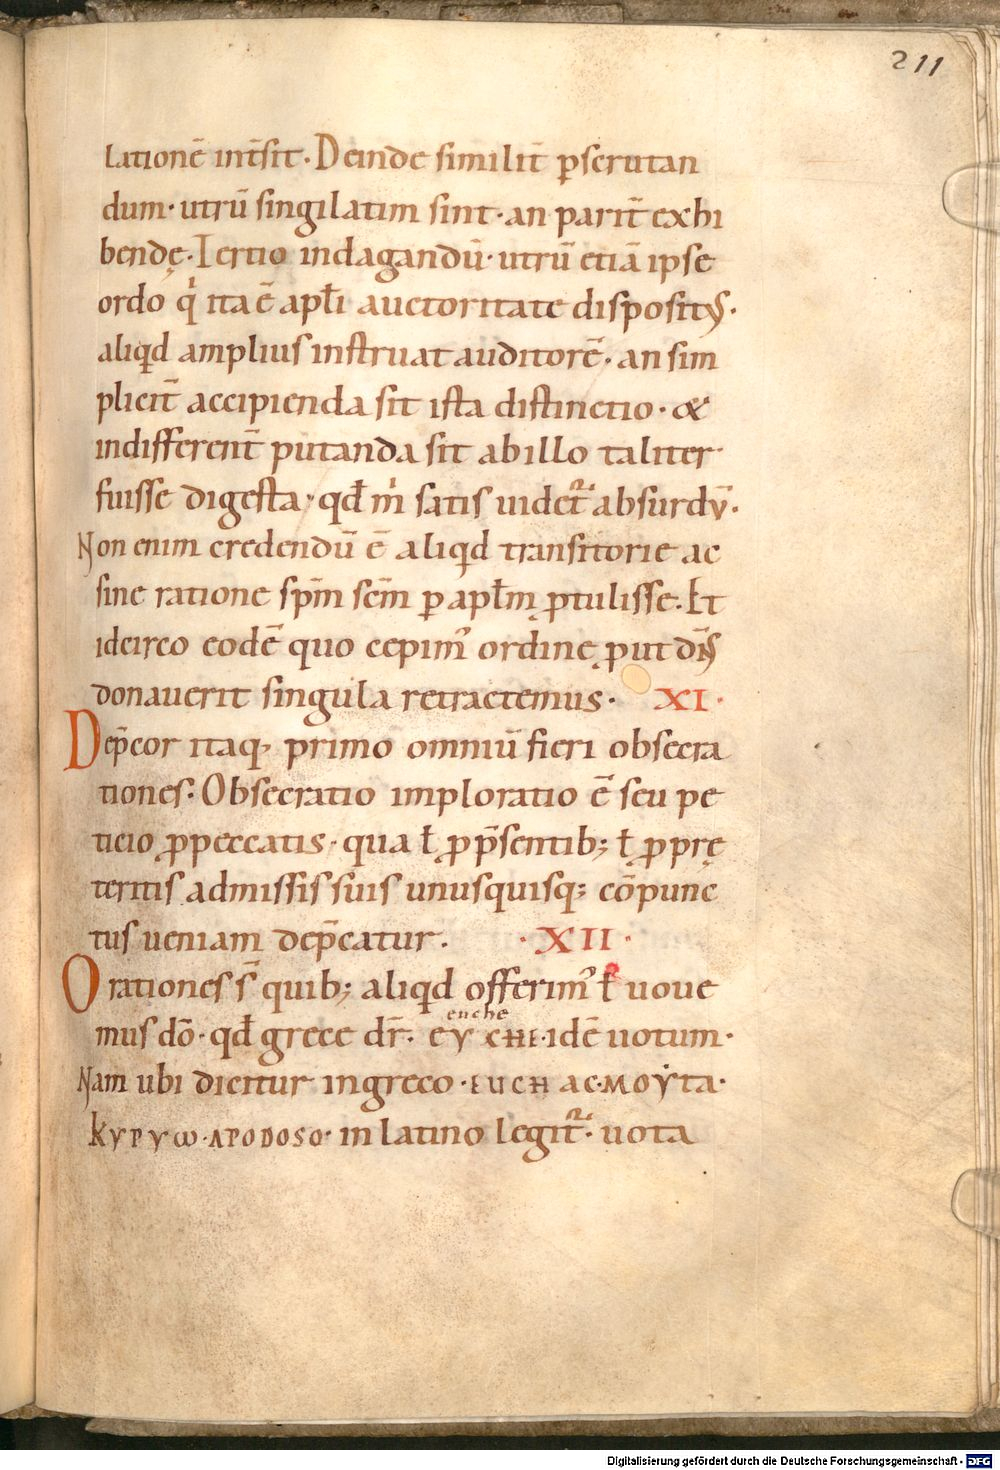 211
latione̅ int̅sit. Deinde similit̅ ꝑscrutan
dum. utru̅ singilatim sint. an parit̅ exhi
bendę. Tertio indagandu̅. utru̅ etia̅ ipse
ordo qͥ ita e̅ apl̅i auctoritate disposit⁹.
aliqd̅ amplius instruat auditore̅. an sim
plicit̅ accipienda sit ista distinctio. &
indifferent̅ putanda sit ab illo taliter
fuisse digesta. qd̅ mͥ satis uidet᷑ absurdu̅.
Non enim credendu̅ e̅ aliqd̅ transitorie ac
sine ratione sp̅m sc̅m ꝑ apl̅m ꝓtulisse. Et
idcirco eode̅ quo cepim᷒ ordine ꝓut dn̅s
donauerit singula retractemus. XI.
Dep̅cor itaq; primo omniu̅ fieri obsecra
tiones. Obsecratio imploratio e̅ seu pe
ticio ꝓ peccatis. qua ł ꝓ p̅sentib; ł ꝓ prę
teritis admissis suis unusquisq; co̅punc
tus ueniam dep̅catur. .XII.
Orationes s̅ quib; aliqd̅ offerim᷒ ł uoue
euche
mus do̅. qd̅ grece dr̅. ΕΥ CHI. ide̅ uotum.
Nam ubi dicitur in greco. EUCH AC. MOYTA.
KYPYω. APODOSO. in latino legit᷑. uota
Digitalisierung gefördert durch die Deutsche Forschungsgemeinschaft - DFG